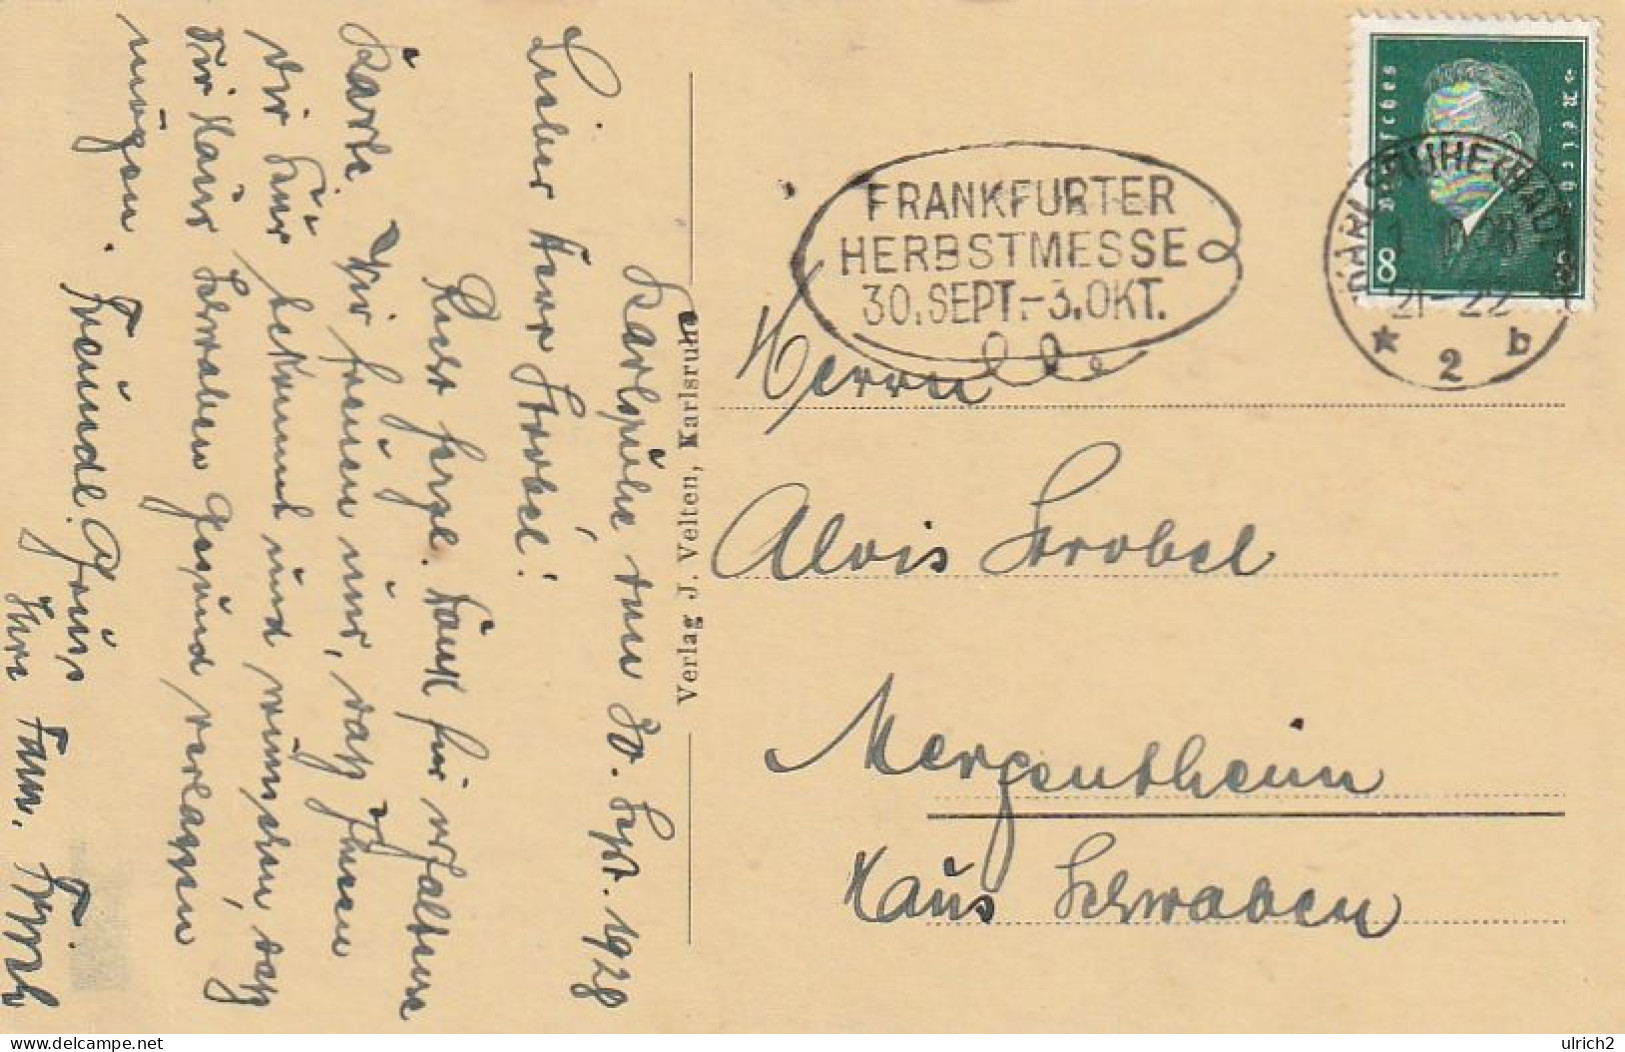 Karlsruhe den 30. Sept. 1928
Lieber Herr Strobel!
Recht herzl. Dank für erhaltene
Karte. Wir freuen uns, daß Ihnen
die Kur bekommt und wünschen, daß
Sie Haus Schwaben gesund verlassen
mögen. Freundl. Gruß
Ihre Fam.
Verlag J. Velten, Karlsruhe
FRANKFURTER
HERBSTMESSE
30. SEPT.-3. OKT.
Deutsches Reich
8
KARLSRUHE (BADEN)
21-22
* 2 b
Herrn
Alois Strobel
Mergentheim
Haus Schwaben
delcampe.net
ulrich2